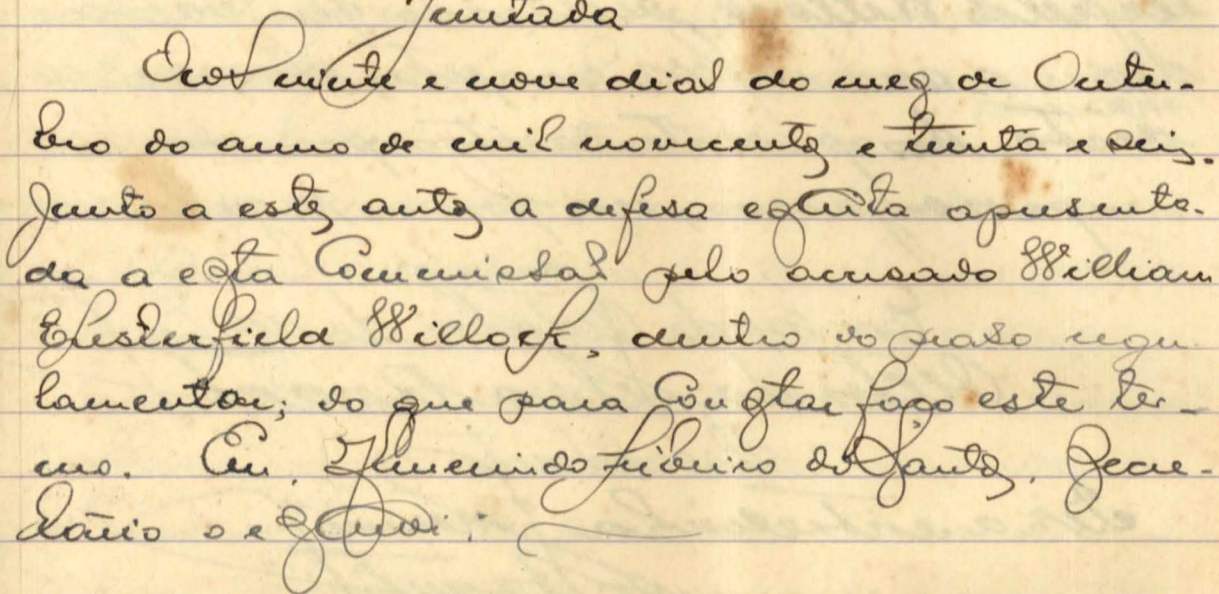 Juntada
Aos vinte e nove dias do mez de Outu-
bro do anno de mil novecentos e trinta e seis.
Junto a estes autos a defesa escrita apresenta-
da a esta Commissão pelo accusado William
Chesterfield Willock, dentro do praso regu
lamentar; do que para constar faço este ter-
mo. Eu, Ribeiro dos Santos, Secre-
tário o escrevi.